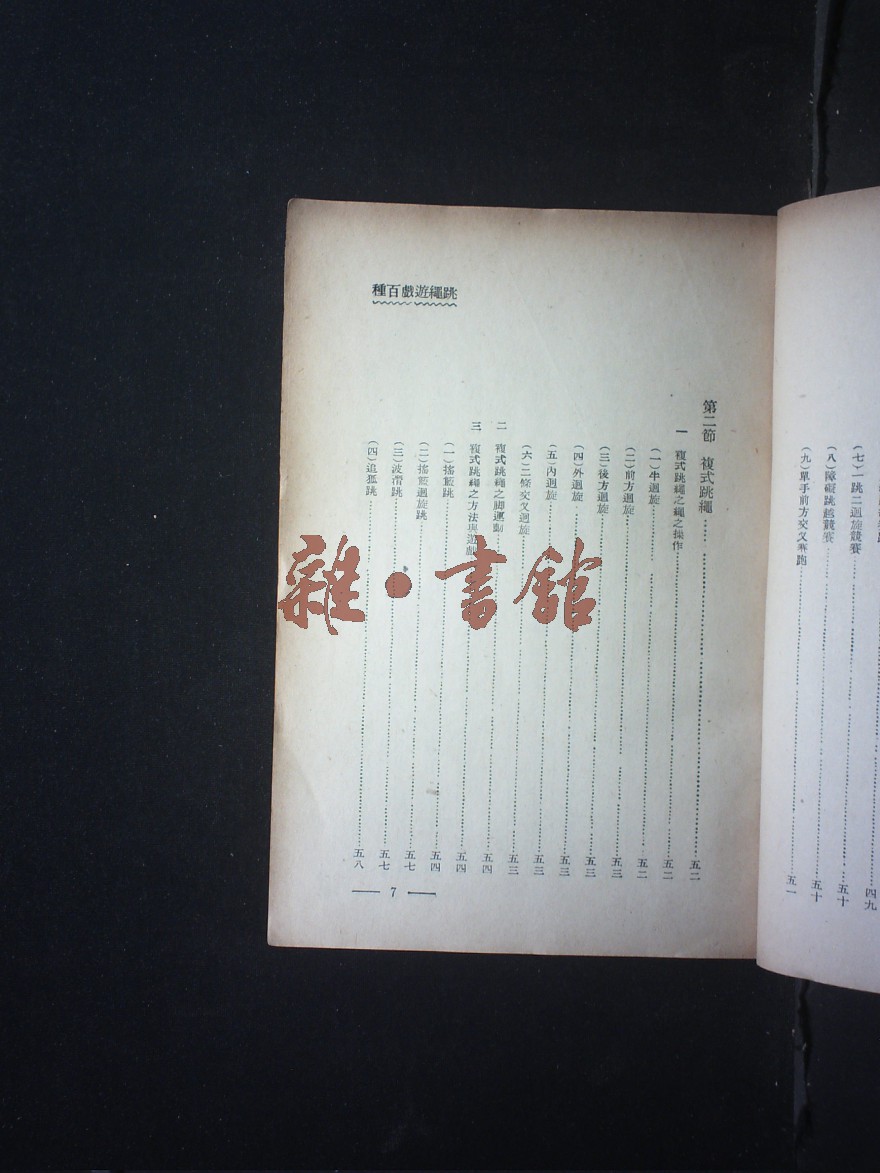 四九
(七)一跳二迴旋競賽……五十
(八)障礙跳越競賽……五十
(九)單手前方交叉賽跑……五一
跳繩遊戲百種
第二節 複式跳繩……五二
一 複式跳繩之繩之操作……五二
(一)半迴旋……五二
(二)前方迴旋……五三
(三)後方迴旋……五三
(四)外迴旋……五三
(五)內迴旋……五三
(六)二條交叉迴旋……五三
二 複式跳繩之脚運動……五四
三 複式跳繩之方法與遊戲……五四
(一)搖籃跳……五四
(二)搖籃迴旋跳……五七
(三)波滑跳……五七
(四)追狐跳……五八
7
雜·書館